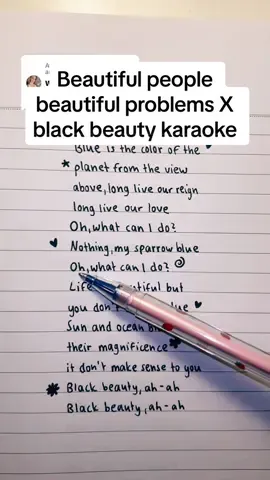 Beautiful people
beautiful problems X
black beauty karaoke
Blue is the color of the
planet from the view
above, long live our reign
long live our love
Oh, what can I do?
Nothing, my sparrow blue
Oh, what can I do?
Life
but
you don't
Sun and ocean
their magnificence
it don't make sense to you
Black beauty, ah-ah
Black beauty, ah-ah